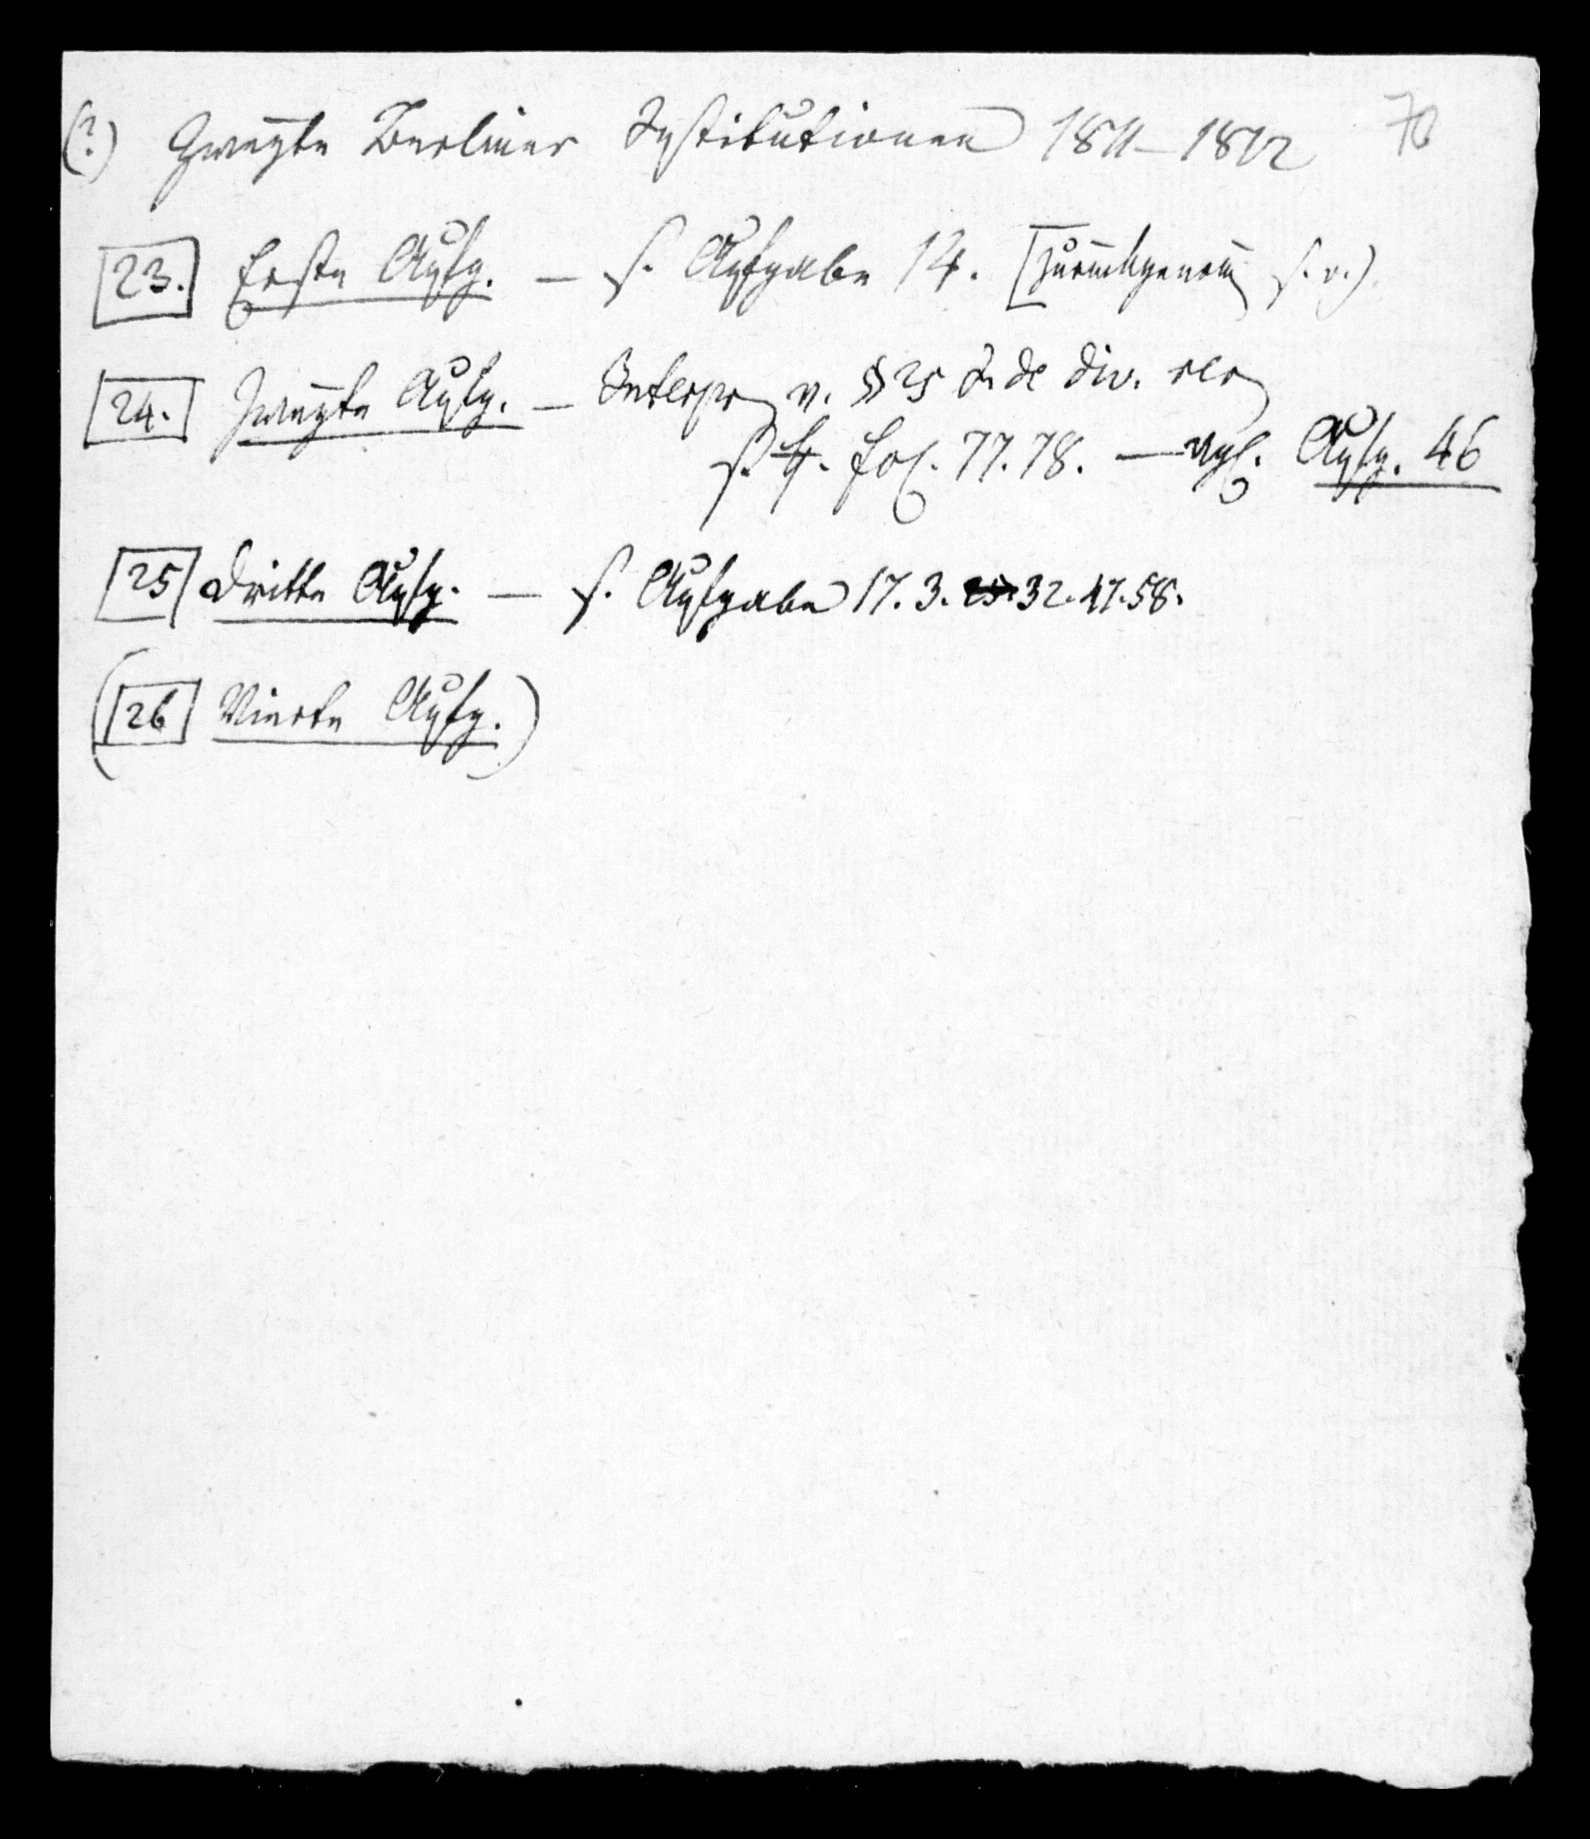 (?) Zweyte Berliner Institutionen 1811–1812 70
23. Erste Aufg. — s. Aufgabe 14. [zurückgenom s. v.)
24. Zweyte Aufg. — Interpr v. § 25 J. de div. rer
s. fol. 77. 78. — vgl. Aufg. 46
25 Dritte Aufg. — s. Aufgabe 17. 3. 32. 47. 58.
(26 Vierte Aufg.)